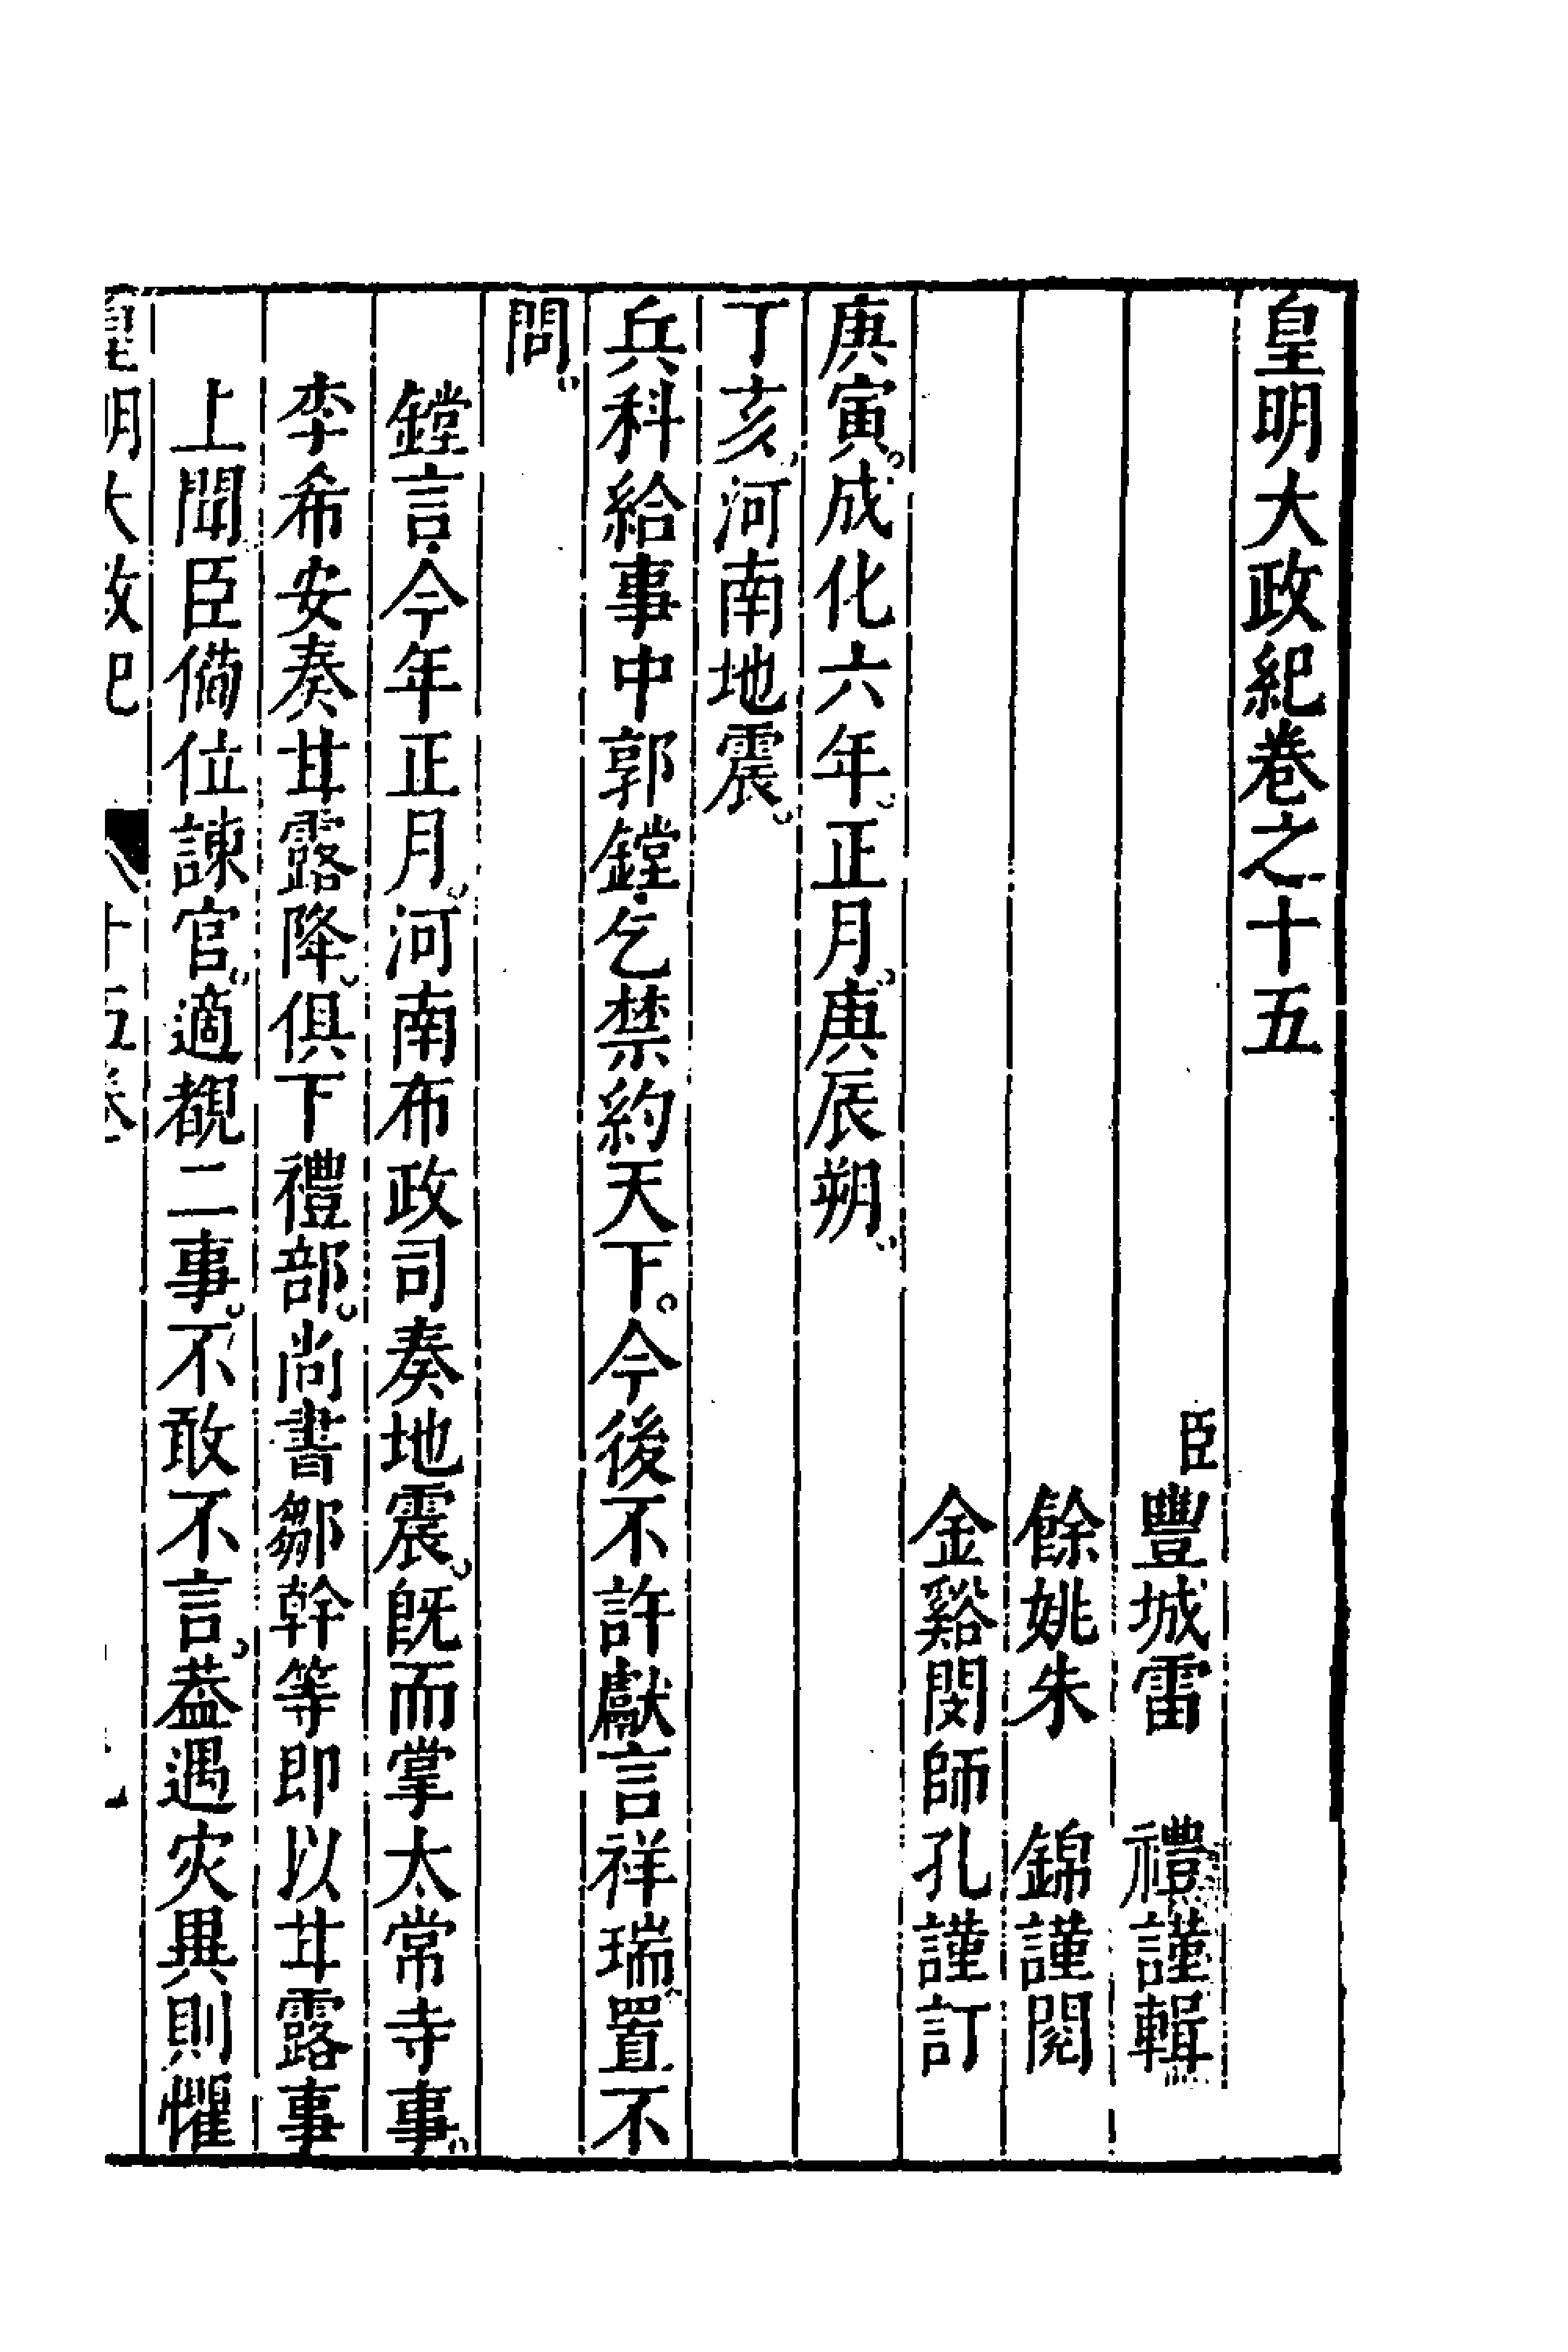 皇明大政紀卷之十五
臣豐城雷　禮謹輯
餘姚朱　錦謹閱
金谿閔師孔謹訂
庚寅。成化六年。正月。庚辰朔。
丁亥。河南地震。
兵科給事中郭鏜。乞禁約天下。今後不許獻言祥瑞。置不
問。
鏜言。今年正月。河南布政司奏地震。旣而掌太常寺事。
李希安奏甘露降。俱下禮部。尚書鄒幹等即以甘露事
上聞臣備位諫官。適覩二事。不敢不言。葢遇灾異則懼
皇明大政紀　十五卷